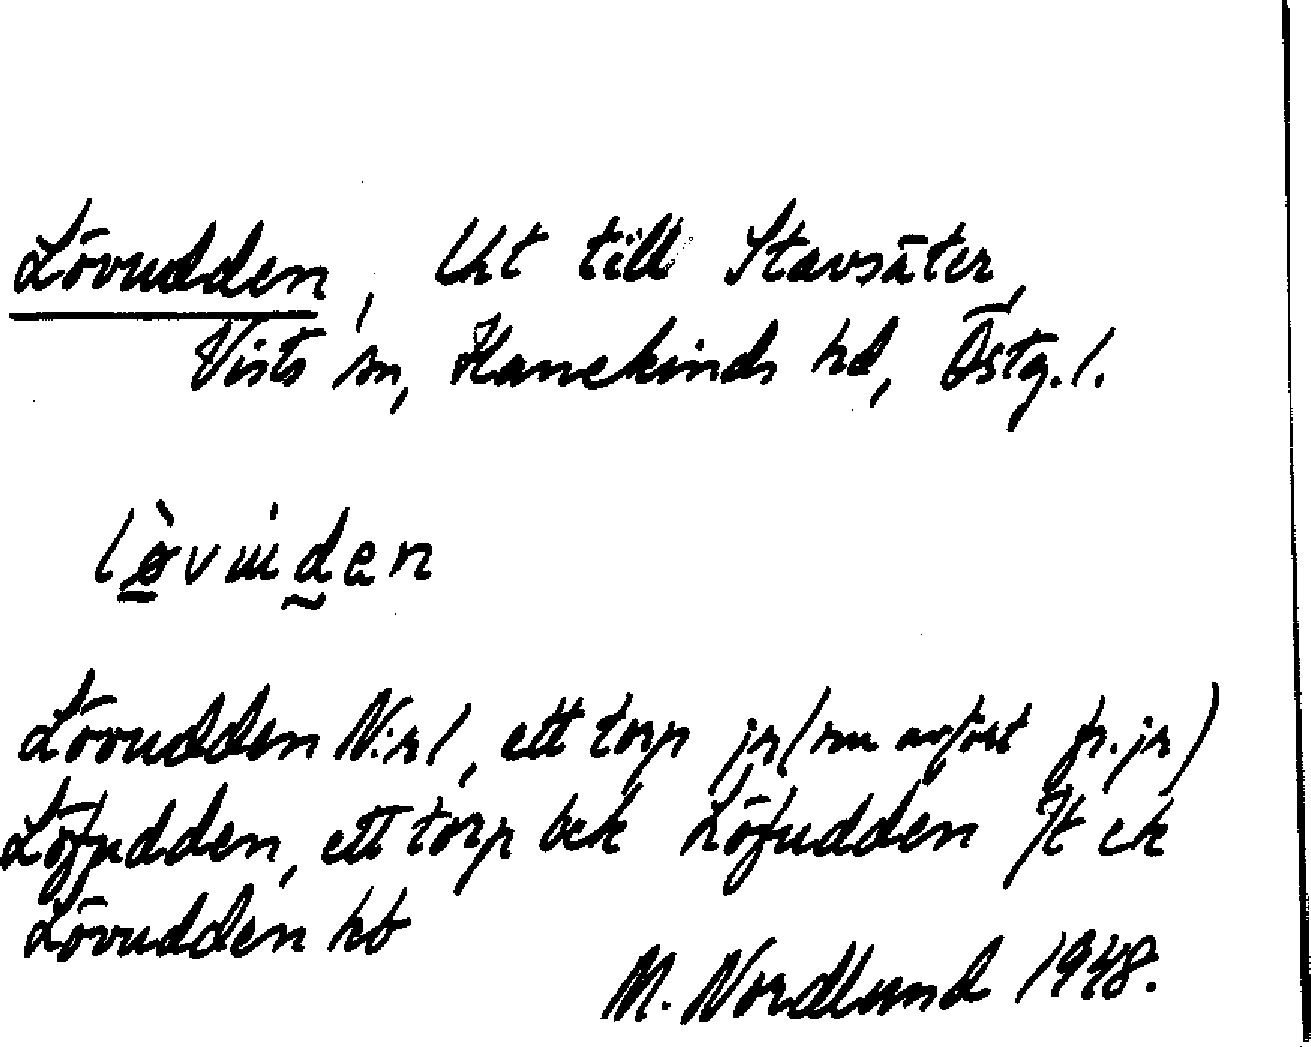 Lövudden, lht till Stavsäter,
Vists sn, Hanekinds hd, Östg. l.
Lövudden N:r 1, ett torp jr (nu avfört fr. jr)
Löfudden, ett torp bek Löfudden Jt ek
Lövudden hb
M. Nordlund 1948.